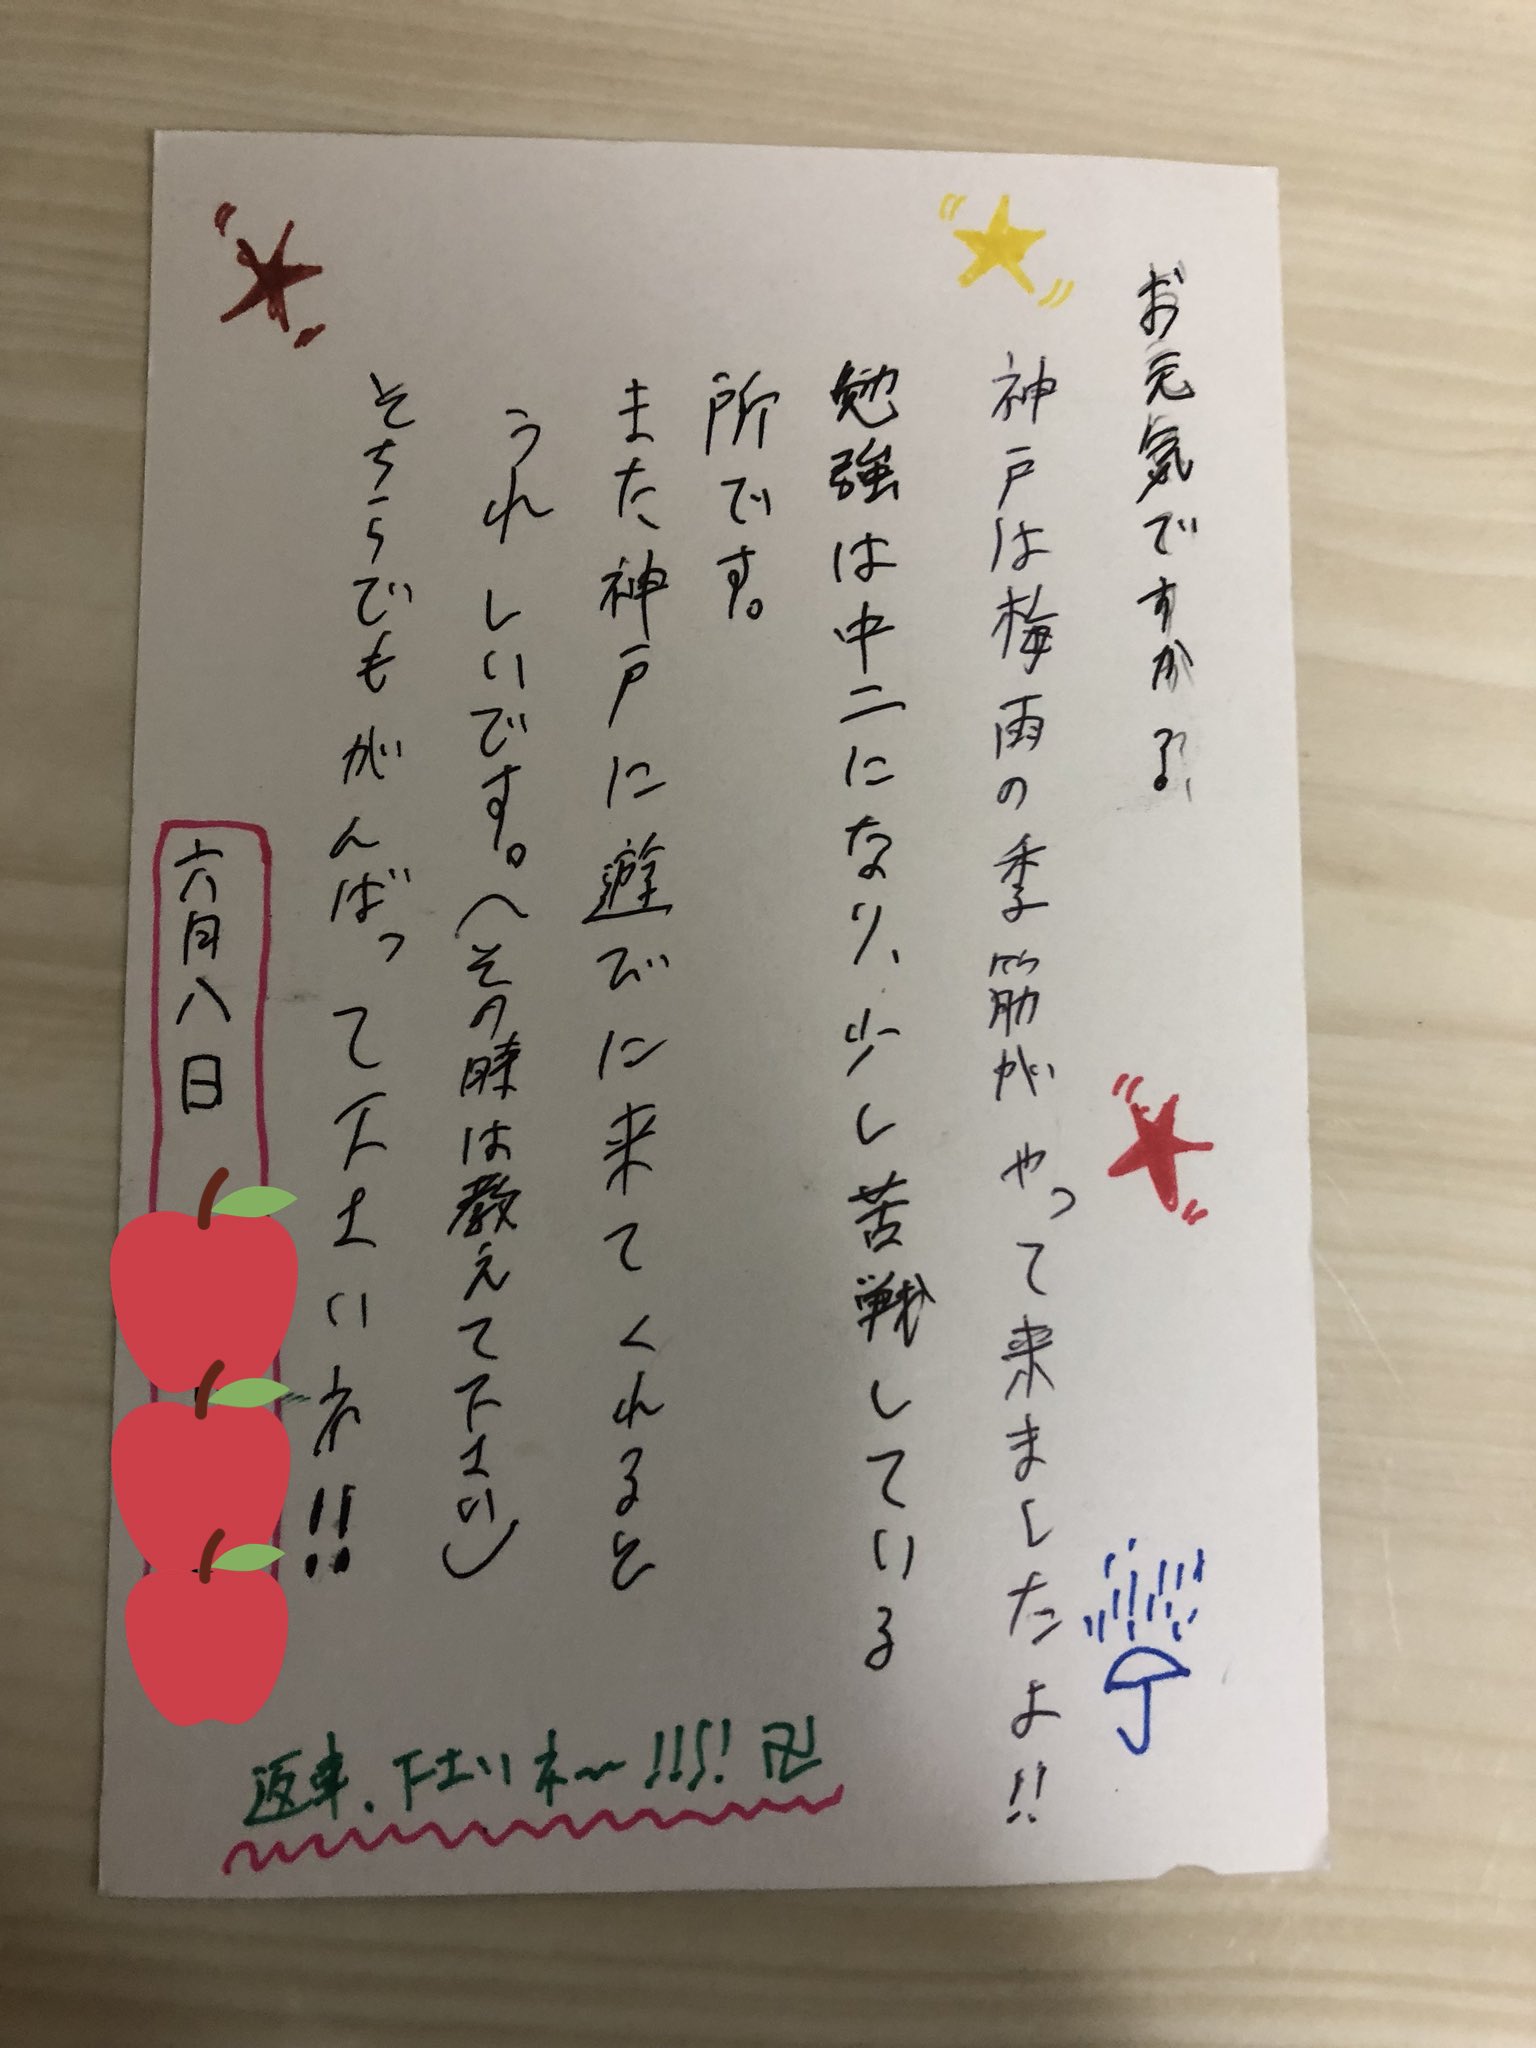 お元気ですか？
神戸は梅雨の季筋がやって来ましたよ!!
勉強は中二になり、少し苦戦している
所です。
また神戸に遊びに来てくれると
うれしいです。(その時は教えて下さい)
そちらでもがんばって下さいネ!!
六月八日
返事、下さいネ〜!!!! 卍